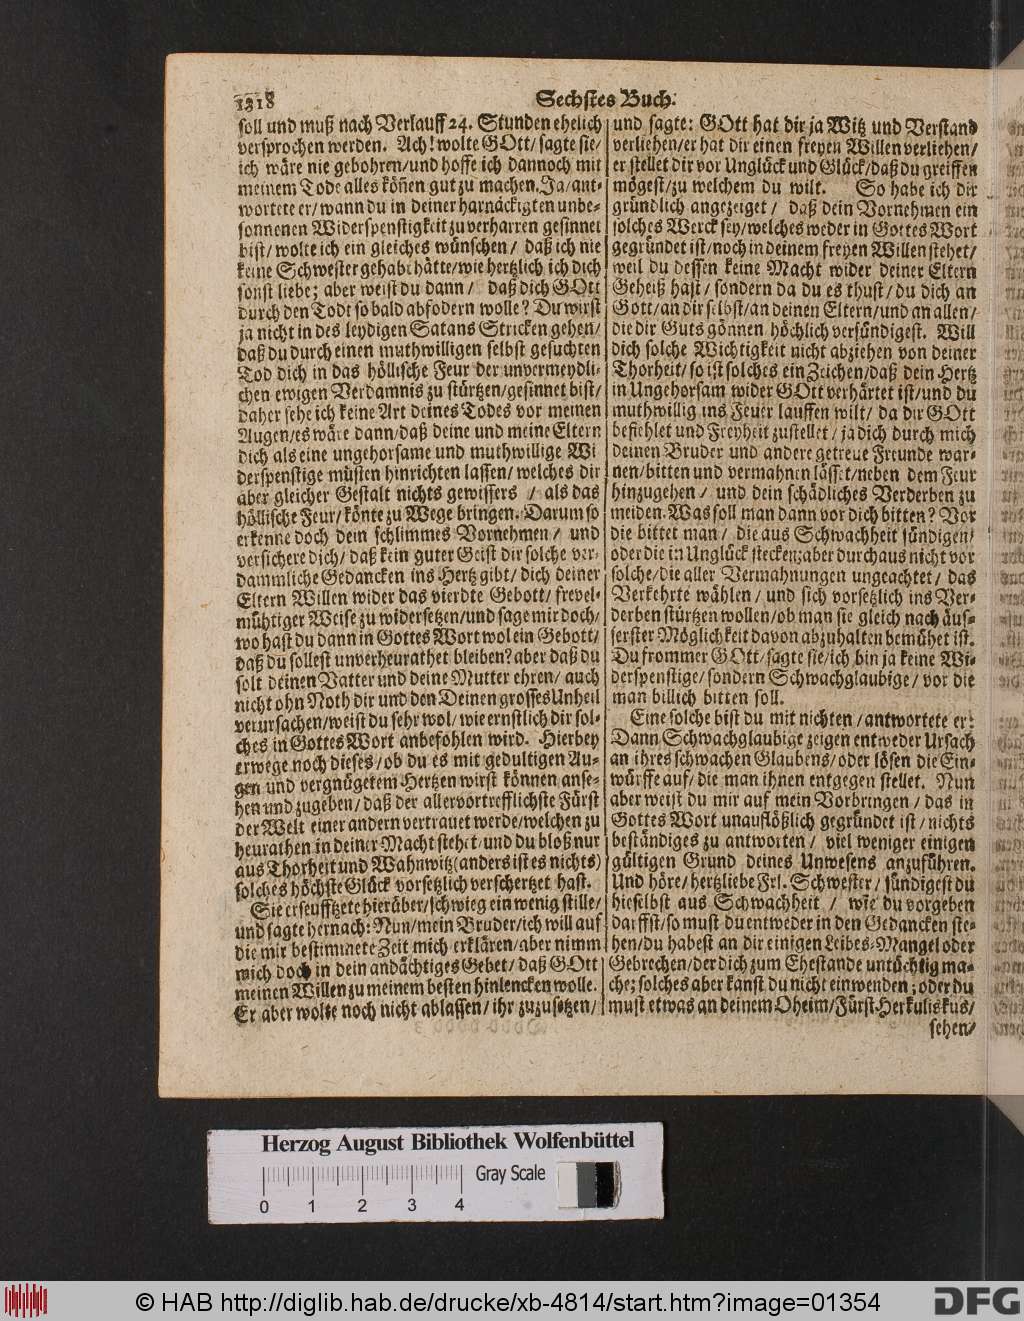 1318
Sechstes Buch.
soll und muß nach Verlauff 24. Stunden ehelich
versprochen werden. Ach! wolte GOtt/ sagte sie/
ich wäre nie gebohren/ und hoffe ich dannoch mit
meinem Tode alles könen gut zu machen. Ja/ ant-
wortete er/ wann du in deiner harnäckigten unbe-
sonnenen Widerspenstigkeit zu verharren gesinnet
bist/ wolte ich ein gleiches wünschen/ daß ich nie
keine Schwester gehabt hätte/ wie hertzlich ich dich
sonst liebe; aber weist du dann/ daß dich GOtt
durch den Todt so bald abfodern wolle? Du wirst
ja nicht in des leydigen Satans Stricken gehen/
daß du durch einen muthwilligen selbst gesuchten
Tod dich in das höllische Feur der unvermeydli-
chen ewigen Verdamnis zu stürtzen/ gesinnet bist/
daher sehe ich keine Art deines Todes vor meinen
Augen/ es wäre dann/ daß deine und meine Eltern
dich als eine ungehorsame und muthwillige Wi
derspenstige müsten hinrichten lassen/ welches dir
aber gleicher Gestalt nichts gewissers / als das
höllische Feur/ könte zu Wege bringen. Darum so
erkenne doch dein schlimmes Vornehmen/ und
versichere dich/ daß kein guter Geist dir solche ver-
dammliche Gedancken ins Hertz gibt/ dich deiner
Eltern Willen wider das vierdte Gebott/ frevel-
mühtiger Weise zu widersetzen/ und sage mir doch/
wo hast du dann in Gottes Wort wol ein Gebott/
daß du sollest unverheurathet bleiben? aber daß du
solt deinen Vatter und deine Mutter ehren/ auch
nicht ohn Noth dir und den Deinen grosses Unheil
verursachen/ weist du sehr wol/ wie ernstlich dir sol-
ches in Gottes Wort anbefohlen wird. Hierbey
erwege noch dieses/ ob du es mit gedultigen Au-
gen und vergnügetem Hertzen wirst können anse-
hen und zugeben/ daß der allervortrefflichste Fürst
der Welt einer andern vertrauet werde/ welchen zu
heurathen in deiner Macht stehet/ und du bloß nur
aus Thorheit und Wahnwitz (anders ist es nichts)
solches höchste Glück vorsetzlich verschertzet hast.
Sie erseufftzete hierüber/ schwieg ein wenig stille/
und sagte hernach: Nun/ mein Bruder/ ich will auf
die mir bestimmete Zeit mich erklären/ aber nimm
mich doch in dein andächtiges Gebet/ daß GOtt
meinen Willen zu meinem besten hinlencken wolle.
Er aber wolte noch nicht ablassen/ ihr zuzusetzen/
und sagte: GOtt hat dir ja Witz und Verstand
verliehen/ er hat dir einen freyen Willen verliehen/
er stellet dir vor Unglück und Glück/ daß du greiffen
mögest/ zu welchem du wilt. So habe ich dir
gründlich angezeiget/ daß dein Vornehmen ein
solches Werck sey/ welches weder in Gottes Wort
gegründet ist/ noch in deinem freyen Willen stehet/
weil du dessen keine Macht wider deiner Eltern
Geheiß hast/ sondern da du es thust/ du dich an
Gott/ an dir selbst/ an deinen Eltern/ und an allen/
die dir Guts gönnen höchlich versündigest. Will
dich solche Wichtigkeit nicht abziehen von deiner
Thorheit/ so ist solches ein Zeichen/ daß dein Hertz
in Ungehorsam wider GOtt verhärtet ist/ und du
muthwillig ins Feuer lauffen wilt/ da dir GOtt
befiehlet und Freyheit zustellet/ ja dich durch mich
deinen Bruder und andere getreue Freunde war-
nen/ bitten und vermahnen lässet/ neben dem Feur
hinzugehen/ und dein schädliches Verderben zu
meiden. Was soll man dann vor dich bitten? Vor
die bittet man/ die aus Schwachheit sündigen/
oder die in Unglück stecken; aber durchaus nicht vor
solche/ die aller Vermahnungen ungeachtet/ das
Verkehrte wählen/ und sich vorsetzlich ins Ver-
derben stürtzen wollen/ ob man sie gleich nach äus-
serster Möglichkeit davon abzuhalten bemühet ist.
Du frommer GOtt/ sagte sie/ ich bin ja keine Wi-
derspenstige/ sondern Schwachglaubige/ vor die
man billich bitten soll.
Eine solche bist du mit nichten/ antwortete er:
Dann Schwachglaubige zeigen entweder Ursach
an ihres schwachen Glaubens/ oder lösen die Ein-
würffe auf/ die man ihnen entgegen stellet. Nun
aber weist du mir auf mein Vorbringen/ das in
Gottes Wort unauflößlich gegründet ist/ nichts
beständiges zu antworten/ viel weniger einigen
gültigen Grund deines Unwesens anzuführen.
Und höre/ hertzliebe Frl. Schwester/ sündigest du
hieselbst aus Schwachheit / wie du vorgeben
darffst/ so must du entweder in den Gedancken ste-
hen/ du habest an dir einigen Leibes-Mangel oder
Gebrechen/ der dich zum Ehestande untüchtig ma-
che; solches aber kanst du nicht einwenden; oder du
must etwas an deinem Oheim/ Fürst Herkuliskus/
sehen/
Herzog August Bibliothek Wolfenbüttel
Gray Scale
0 1 2 3 4
© HAB http://diglib.hab.de/drucke/xb-4814/start.htm?image=01354
DFG